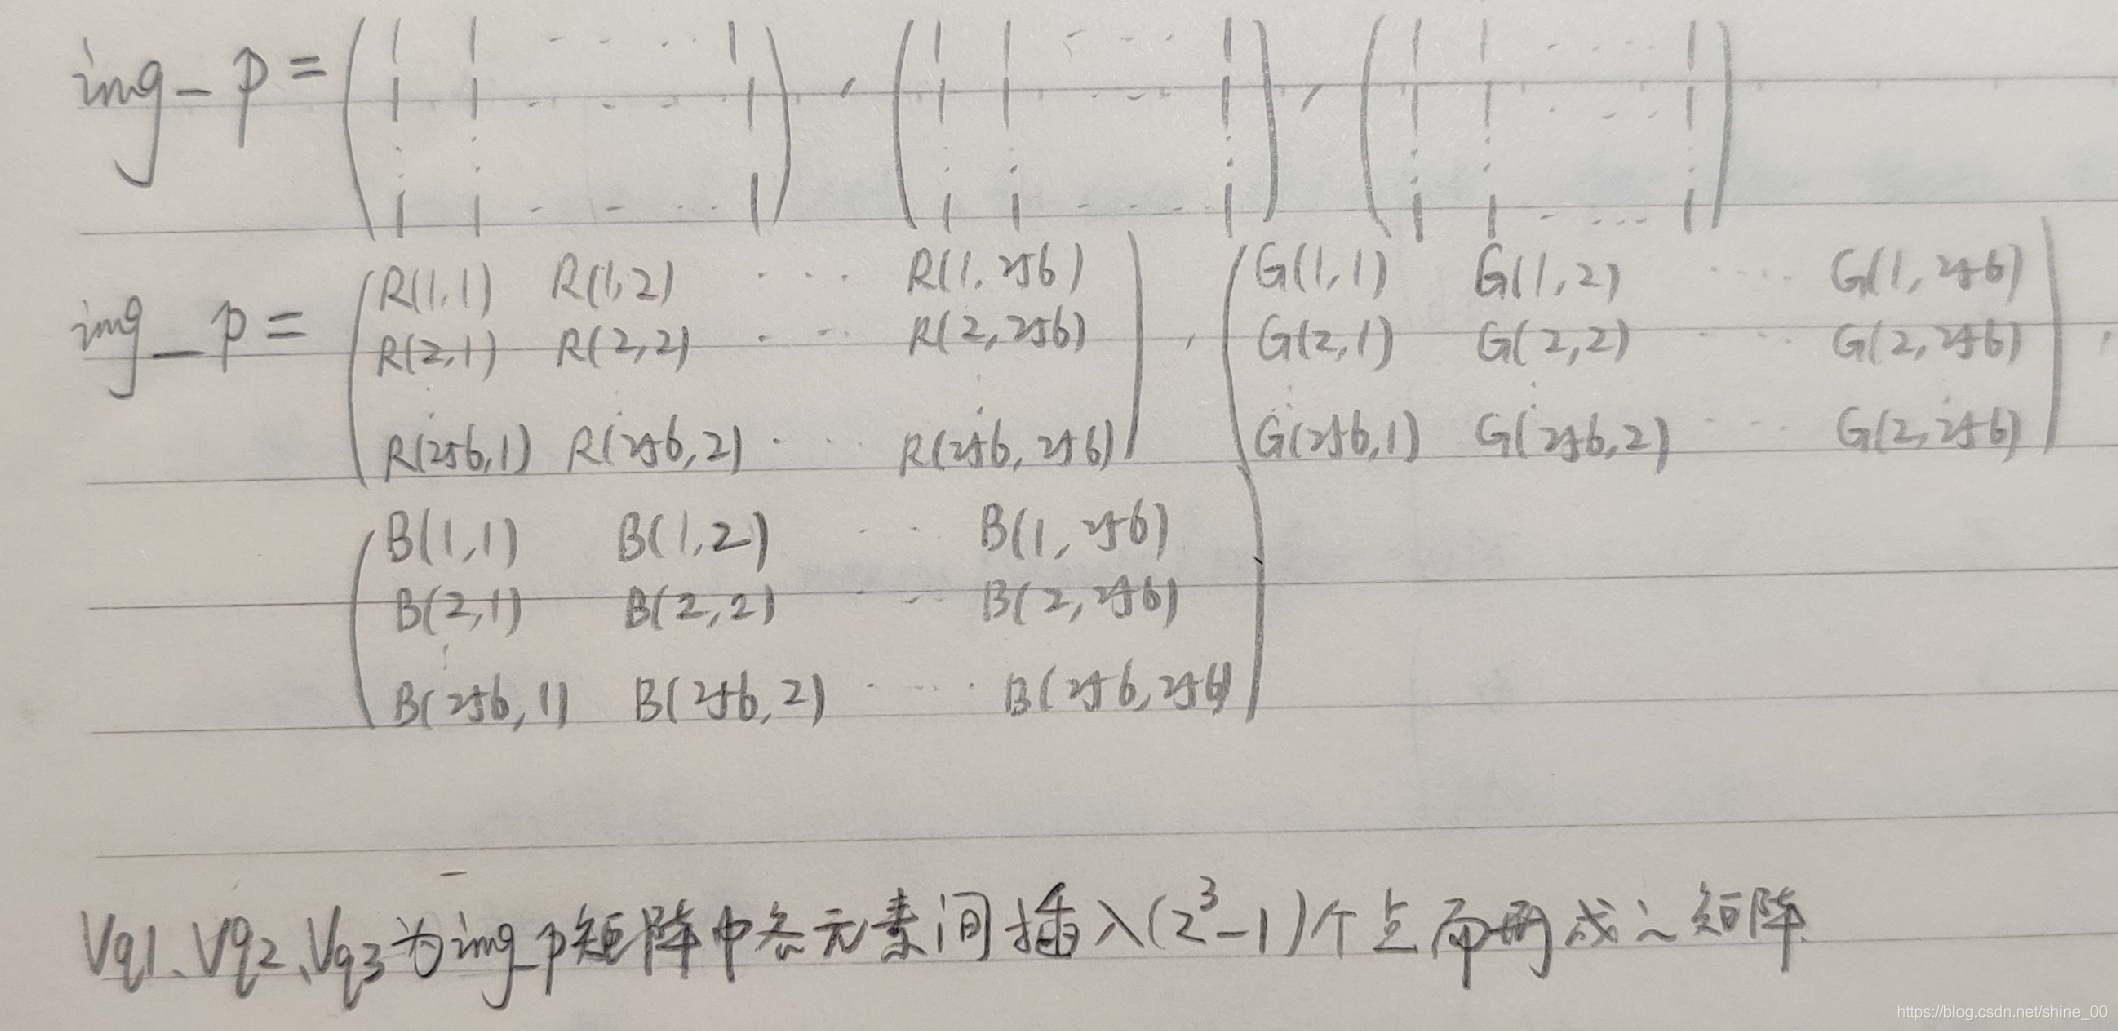 img_p = ( 1 1 - - . . 1 ) , ( 1 1 - - - . 1 ) , ( 1 1 - . . . 1 )
1 1 . - - . . 1 1 1 . . - . 1 1 1 . - . . 1
⋮ ⋮ ⋮ ⋮ ⋮ ⋮ ⋮
1 1 - - - . . 1 1 1 - - - . . . 1 1 1 - . - . . 1
img_p = ( R(1,1) R(1,2) ... R(1,256) ) , ( G(1,1) G(1,2) ... G(1,256) ) ,
R(2,1) R(2,2) ... R(2,256) G(2,1) G(2,2) ... G(2,256)
R(256,1) R(256,2) ... R(256,256) G(256,1) G(256,2) ... G(2,256)
( B(1,1) B(1,2) ... B(1,256) )
B(2,1) B(2,2) ... B(2,256)
B(256,1) B(256,2) ... B(256,256)
Vq1、Vq2、Vq3为img_p矩阵中各元素间插入(2³-1)个点而成之矩阵
https://blog.csdn.net/shine_00